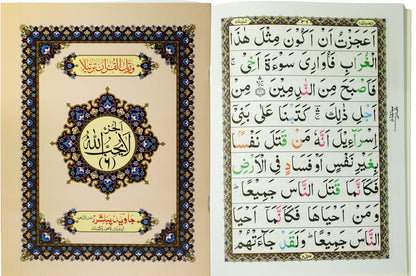 ورتل القرآن ترتيلا
الجزء
لا يحب الله
(٦)
اَعَجَزْتُ اَنْ اَكُوْنَ مِثْلَ هٰذَا
الْغُرَابِ فَاُوَارِىَ سَوْءَةَ اَخِىْ ۚ
فَاَصْبَحَ مِنَ النّٰدِمِيْنَ مِنْ
اَجْلِ ذٰلِكَ ۛ كَتَبْنَا عَلٰى بَنِىْٓ
اِسْرَآءِيْلَ اَنَّهٗ مَنْ قَتَلَ نَفْسًۢا
بِغَيْرِ نَفْسٍ اَوْ فَسَادٍ فِى الْاَرْضِ
فَكَاَنَّمَا قَتَلَ النَّاسَ جَمِيْعًا ؕ
وَ مَنْ اَحْيَاهَا فَكَاَنَّمَاۤ اَحْيَا
النَّاسَ جَمِيْعًا ؕ وَ لَقَدْ جَآءَتْهُمْ